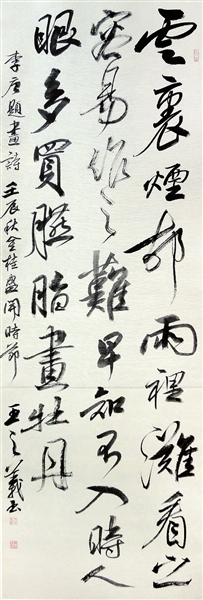 雲裏煙邨雨裡灘看之
容易作之難早知不入時人
眼多買臙脂畫牡丹
李唐題畫詩 壬辰秋金桂盛開時節 王之義書